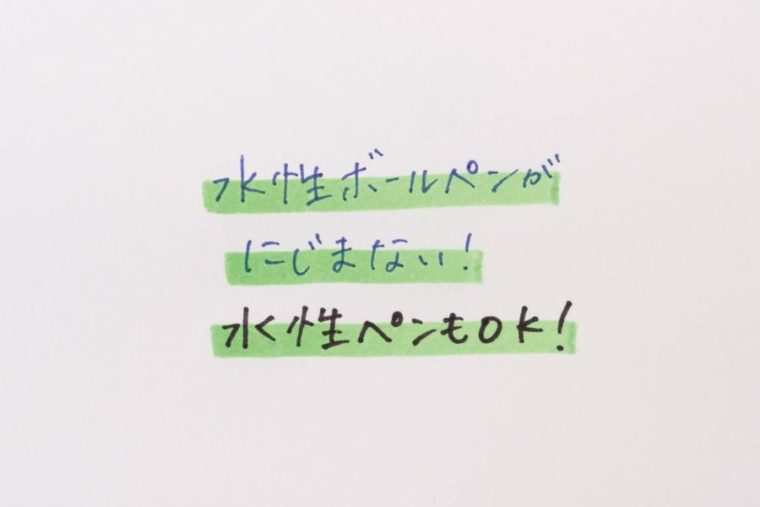 水性ボールペンが
にじまない!
水性ペンもOK!